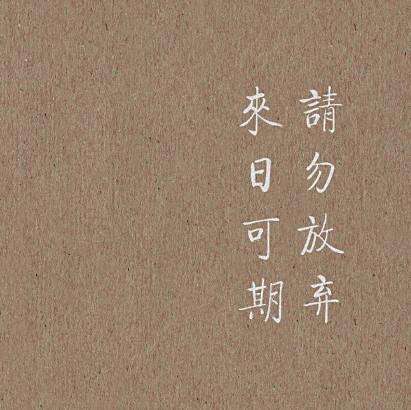 請勿放弃
來日可期